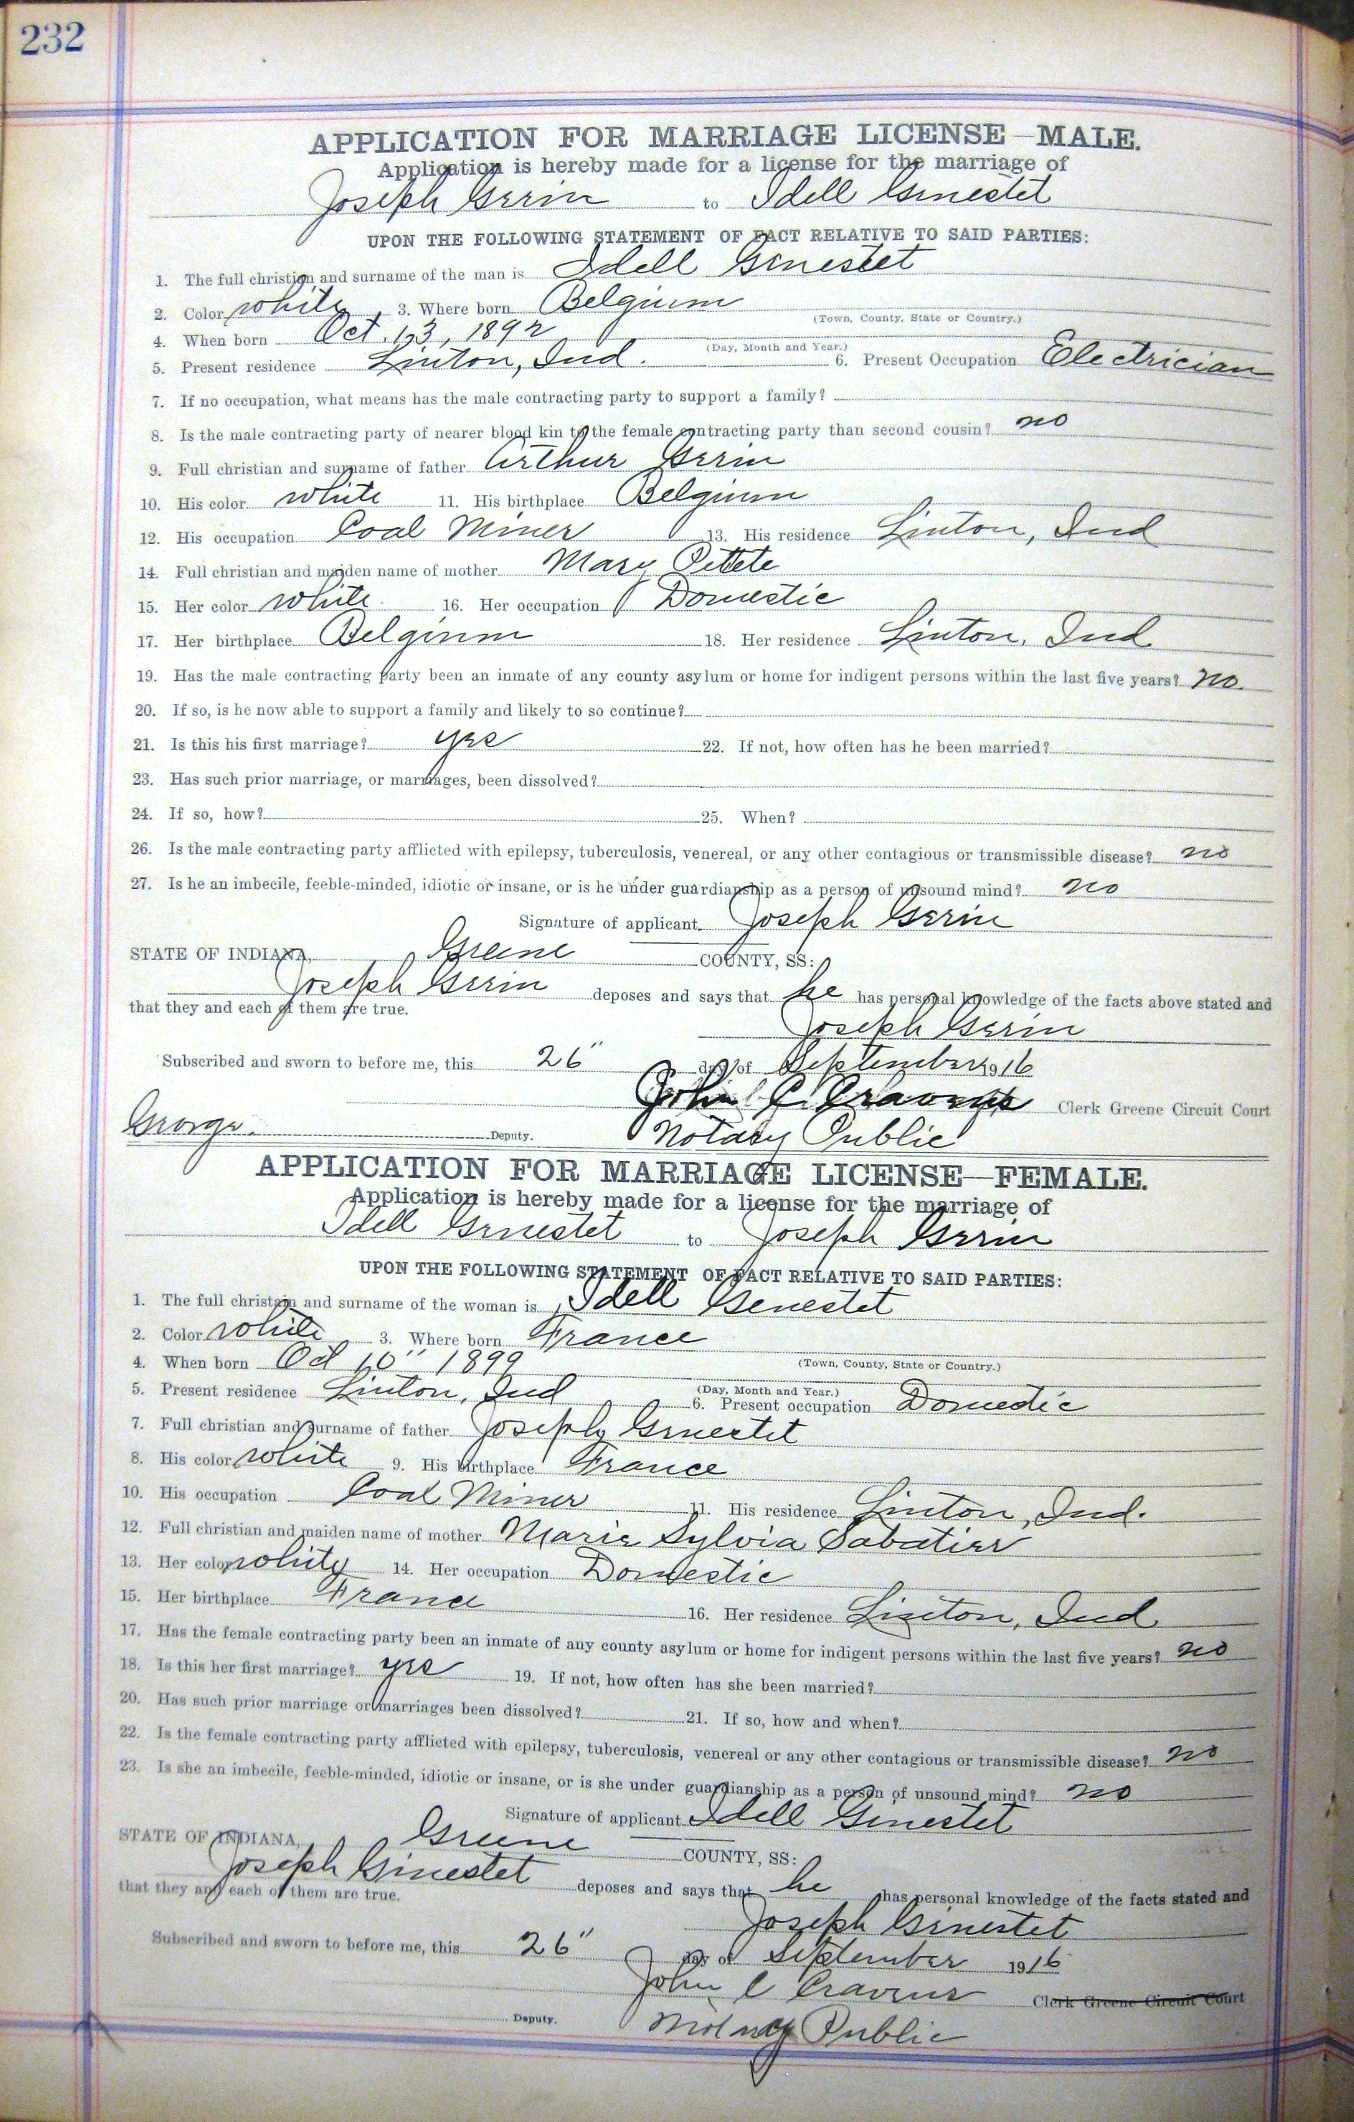 232
APPLICATION FOR MARRIAGE LICENSE—MALE.
Application is hereby made for a license for the marriage of
Joseph Gerin to Idell Genestet
UPON THE FOLLOWING STATEMENT OF FACT RELATIVE TO SAID PARTIES:
1. The full christian and surname of the man is Idell Genestet
2. Color white 3. Where born Belgium
(Town, County, State or Country.)
4. When born Oct. 13, 1892
(Day, Month and Year.)
5. Present residence Linton, Ind. 6. Present Occupation Electrician
7. If no occupation, what means has the male contracting party to support a family?
8. Is the male contracting party of nearer blood kin to the female contracting party than second cousin? no
9. Full christian and surname of father Arthur Gerin
10. His color white 11. His birthplace Belgium
12. His occupation Coal Miner 13. His residence Linton, Ind
14. Full christian and maiden name of mother Mary
15. Her color white 16. Her occupation Domestic
17. Her birthplace Belginm 18. Her residence Linton, Ind
19. Has the male contracting party been an inmate of any county asylum or home for indigent persons within the last five years? no
20. If so, is he now able to support a family and likely to so continue?
21. Is this his first marriage? yes 22. If not, how often has he been married?
23. Has such prior marriage, or marriages, been dissolved?
24. If so, how? 25. When?
26. Is the male contracting party afflicted with epilepsy, tuberculosis, venereal, or any other contagious or transmissible disease? no
27. Is he an imbecile, feeble-minded, idiotic or insane, or is he under guardianship as a person of unsound mind? no
Signature of applicant Joseph Gerin
STATE OF INDIANA, Greene COUNTY, SS:
Joseph Gerin deposes and says that he has personal knowledge of the facts above stated and
that they and each of them are true.
Joseph Gerin
Subscribed and sworn to before me, this 26" day of September 1916
John C. Cravens Clerk Greene Circuit Court
George. Deputy. Notary Public
APPLICATION FOR MARRIAGE LICENSE—FEMALE.
Application is hereby made for a license for the marriage of
Idell Genestet to Joseph Gerin
UPON THE FOLLOWING STATEMENT OF FACT RELATIVE TO SAID PARTIES:
1. The full christain and surname of the woman is Idell Genestet
2. Color white 3. Where born France
(Town, County, State or Country.)
4. When born Oct 10" 1899
(Day, Month and Year.)
5. Present residence Linton, Ind 6. Present occupation Domestic
7. Full christian and surname of father Joseph Genestet
8. His color white 9. His birthplace France
10. His occupation Coal Miner 11. His residence Linton, Ind.
12. Full christian and maiden name of mother Marie Sylvia Sabatier
13. Her color white 14. Her occupation Domestic
15. Her birthplace France 16. Her residence Linton, Ind
17. Has the female contracting party been an inmate of any county asylum or home for indigent persons within the last five years? no
18. Is this her first marriage? yes 19. If not, how often has she been married?
20. Has such prior marriage or marriages been dissolved? 21. If so, how and when?
22. Is the female contracting party afflicted with epilepsy, tuberculosis, venereal or any other contagious or transmissible disease? no
23. Is she an imbecile, feeble-minded, idiotic or insane, or is she under guardianship as a person of unsound mind? no
Signature of applicant Idell Ginestet
STATE OF INDIANA, Greene COUNTY, SS:
Joseph Ginestet deposes and says that he has personal knowledge of the facts stated and
that they and each of them are true.
Joseph Ginestet
Subscribed and sworn to before me, this 26" day of September 1916
John C Cravens Clerk Greene Circuit Court
Deputy. Notary Public